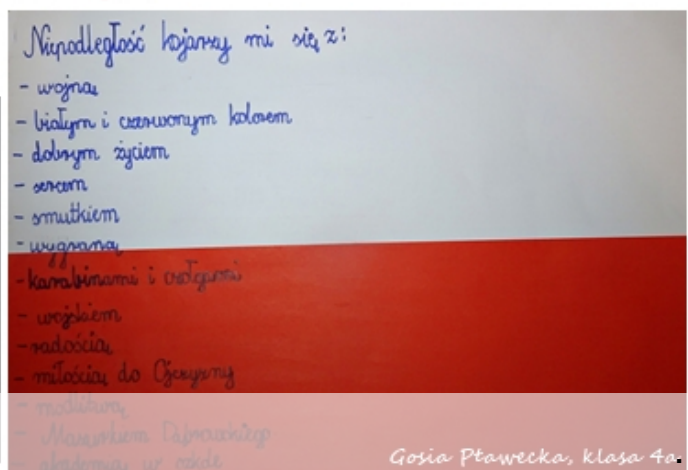 Niepodległość kojarzy mi się z:
- wojną
- białym i czerwonym kolorem
- dobrym życiem
- sercem
- smutkiem
- wygraną
- karabinami i czołgami
- wojskiem
- radością
- miłością do Ojczyzny
- modlitwą
- Mazurkiem Dąbrowskiego
- akademią w szkole
Gosia Pławecka, klasa 4a.